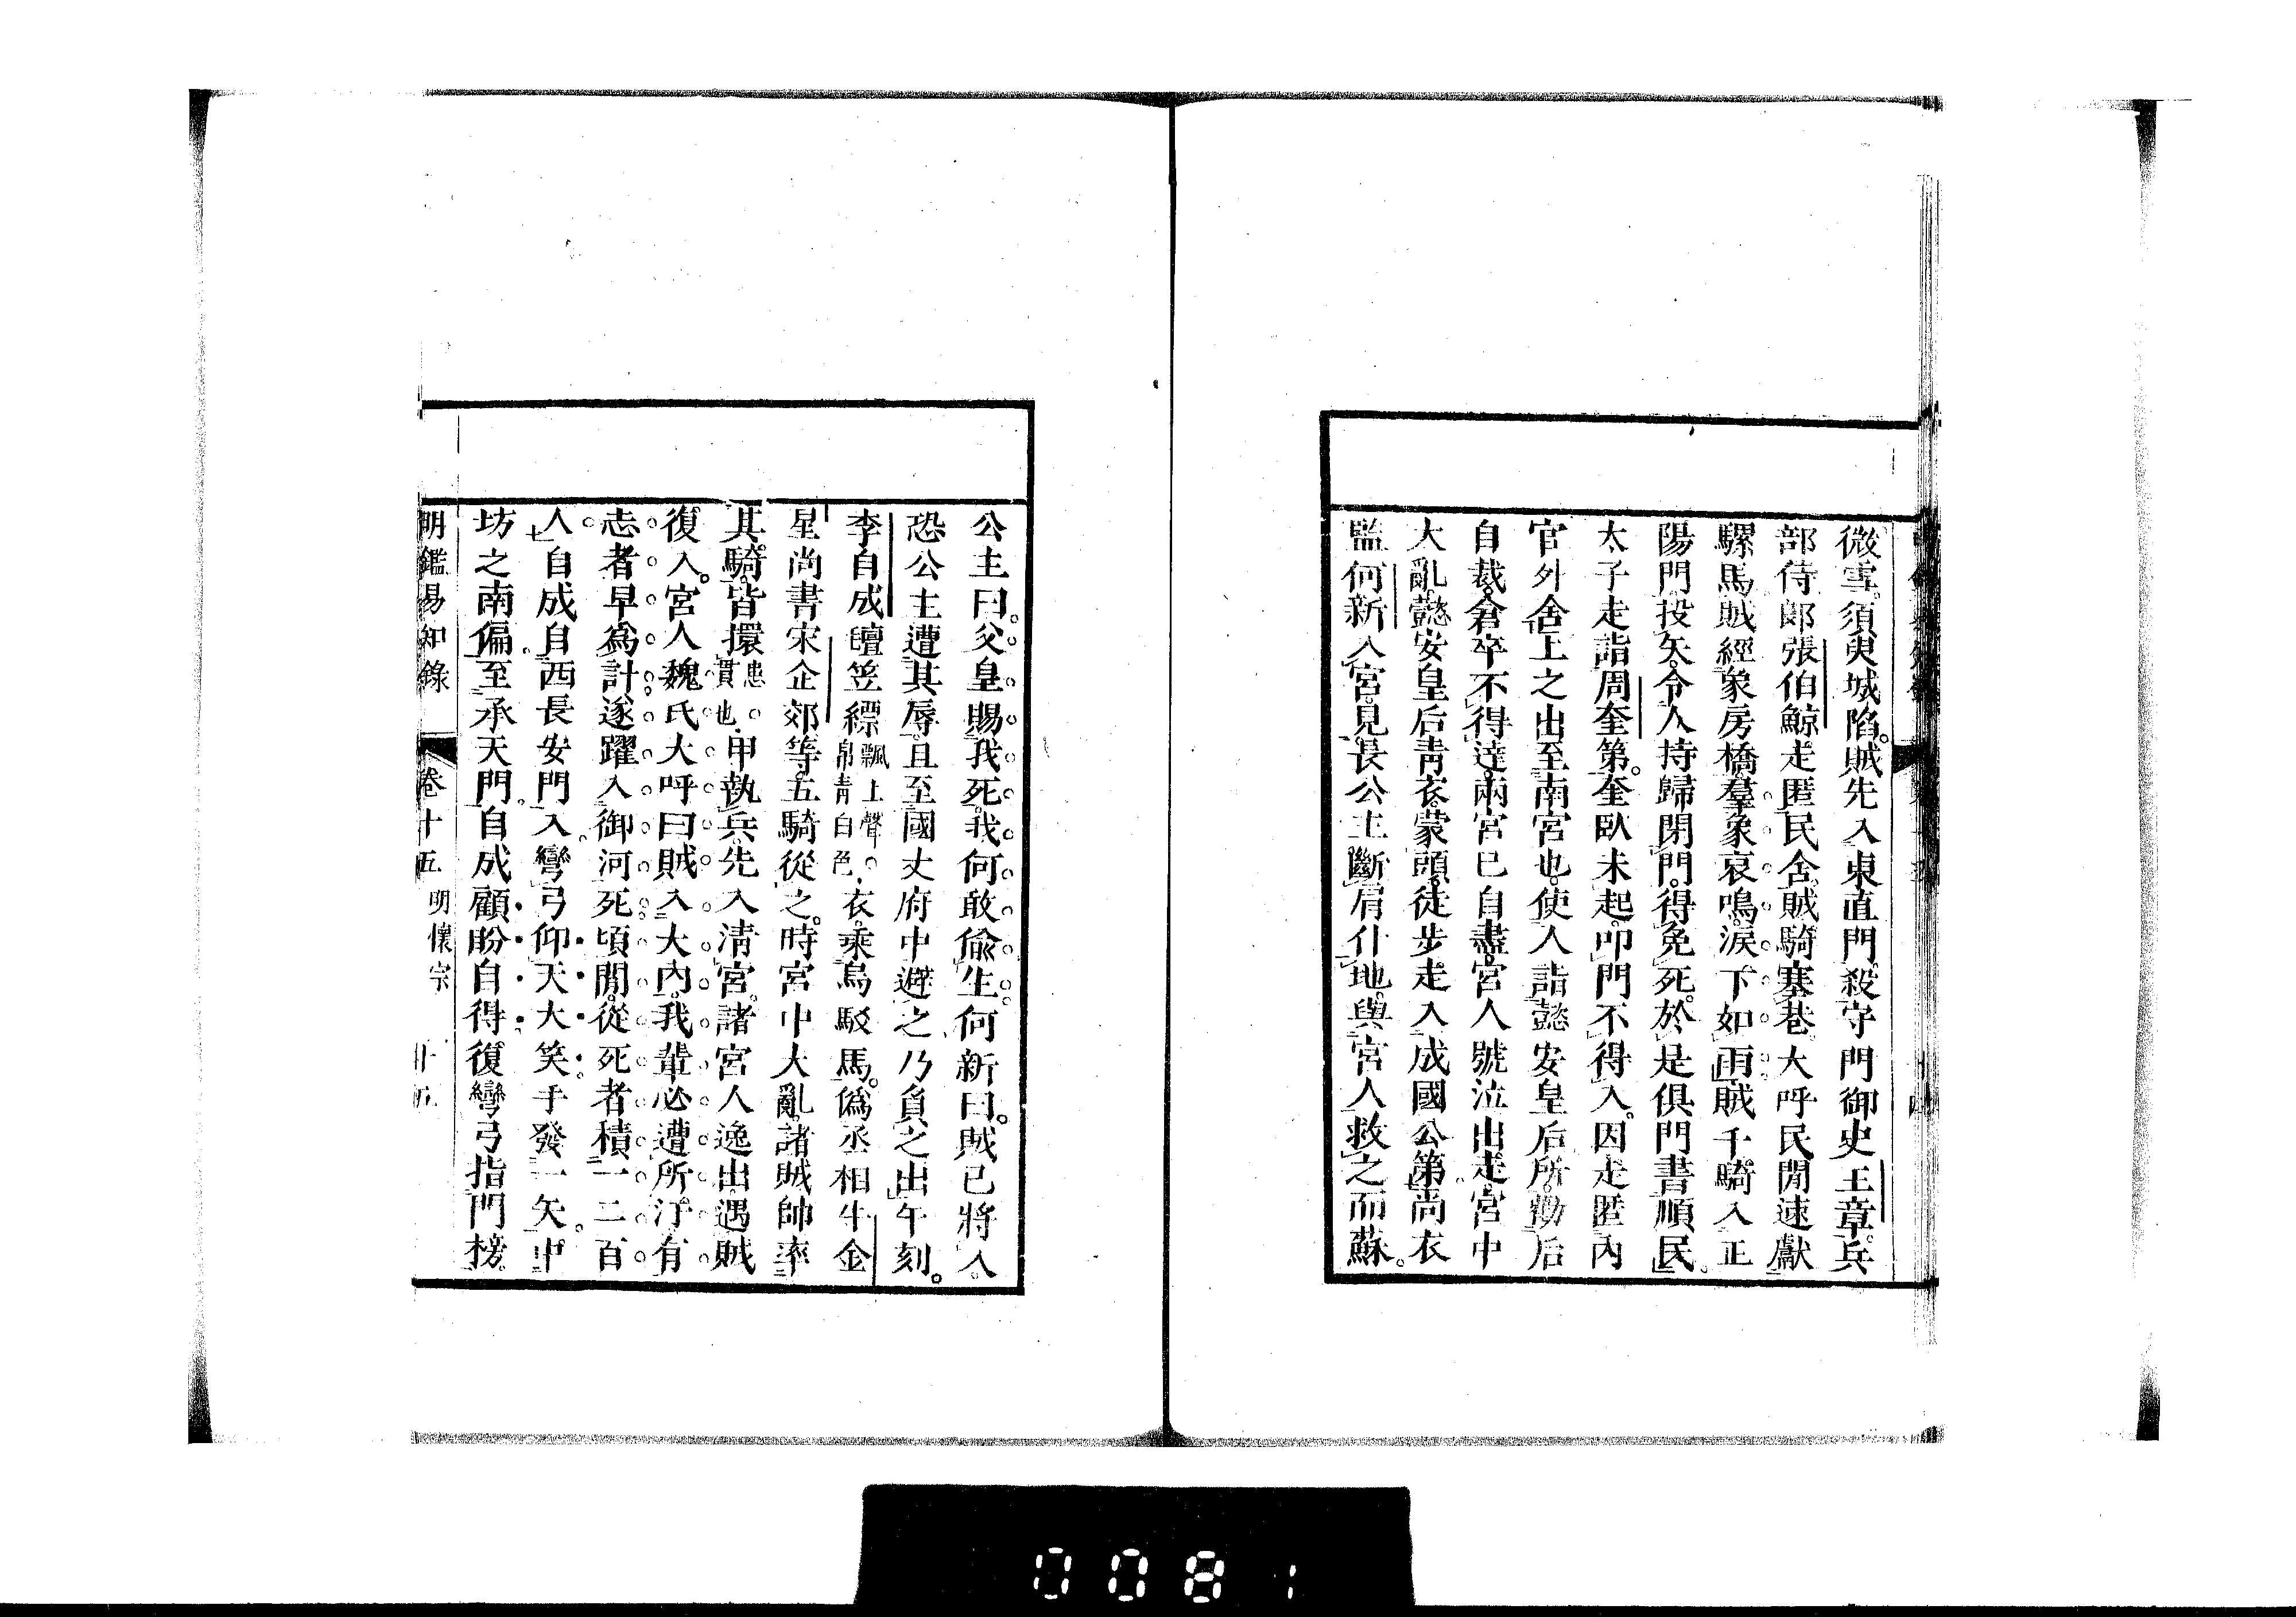 微雪須臾城陷。賊先入東直門殺守門御史王章。兵
部侍郎張伯鯨走匿民舍。賊騎塞巷。大呼民閒速獻
騾馬賊經象房橋羣象哀鳴。淚下如雨賊千騎入正
陽門投矢。令人持歸閉門。得免死。於是俱門書順民
太子走詣周奎第。奎臥未起。叩門不得入。因走匿內
官外舍上之出至南宮也。使人詣懿安皇后所。勸后
自裁。倉卒不得達。兩宮已自盡。宮人號泣出走。宮中
大亂。懿安皇后青衣。蒙頭。徒步。走入成國公第。尚衣
監何新入宮。見長公主斷肩仆地。與宮人救之而蘇。
公主曰。父皇賜我死。我何敢偷生。何新曰。賊已將入。
恐公主遭其辱。且至國丈府中避之。乃負之出午刻。
李自成氊笠縹飄上聲。帛青白色。衣。乘烏駁馬。僞丞相牛金
星尚書宋企郊等。五騎從之。時宮中大亂。諸賊帥率
其騎。皆擐患。貫也。甲執兵。先入淸宮。諸宮人逸出。遇賊
復入。宮人魏氏大呼曰賊入大內。我輩必遭所汙。有
志者早爲計。遂躍入御河死。頃閒。從死者積一二百
人。自成自西長安門入。彎弓仰天大笑。手發一矢。中
坊之南偏。至承天門。自成顧盼自得。復彎弓指門榜。
明鑑易知錄 卷十五 明懷宗 十五
0081